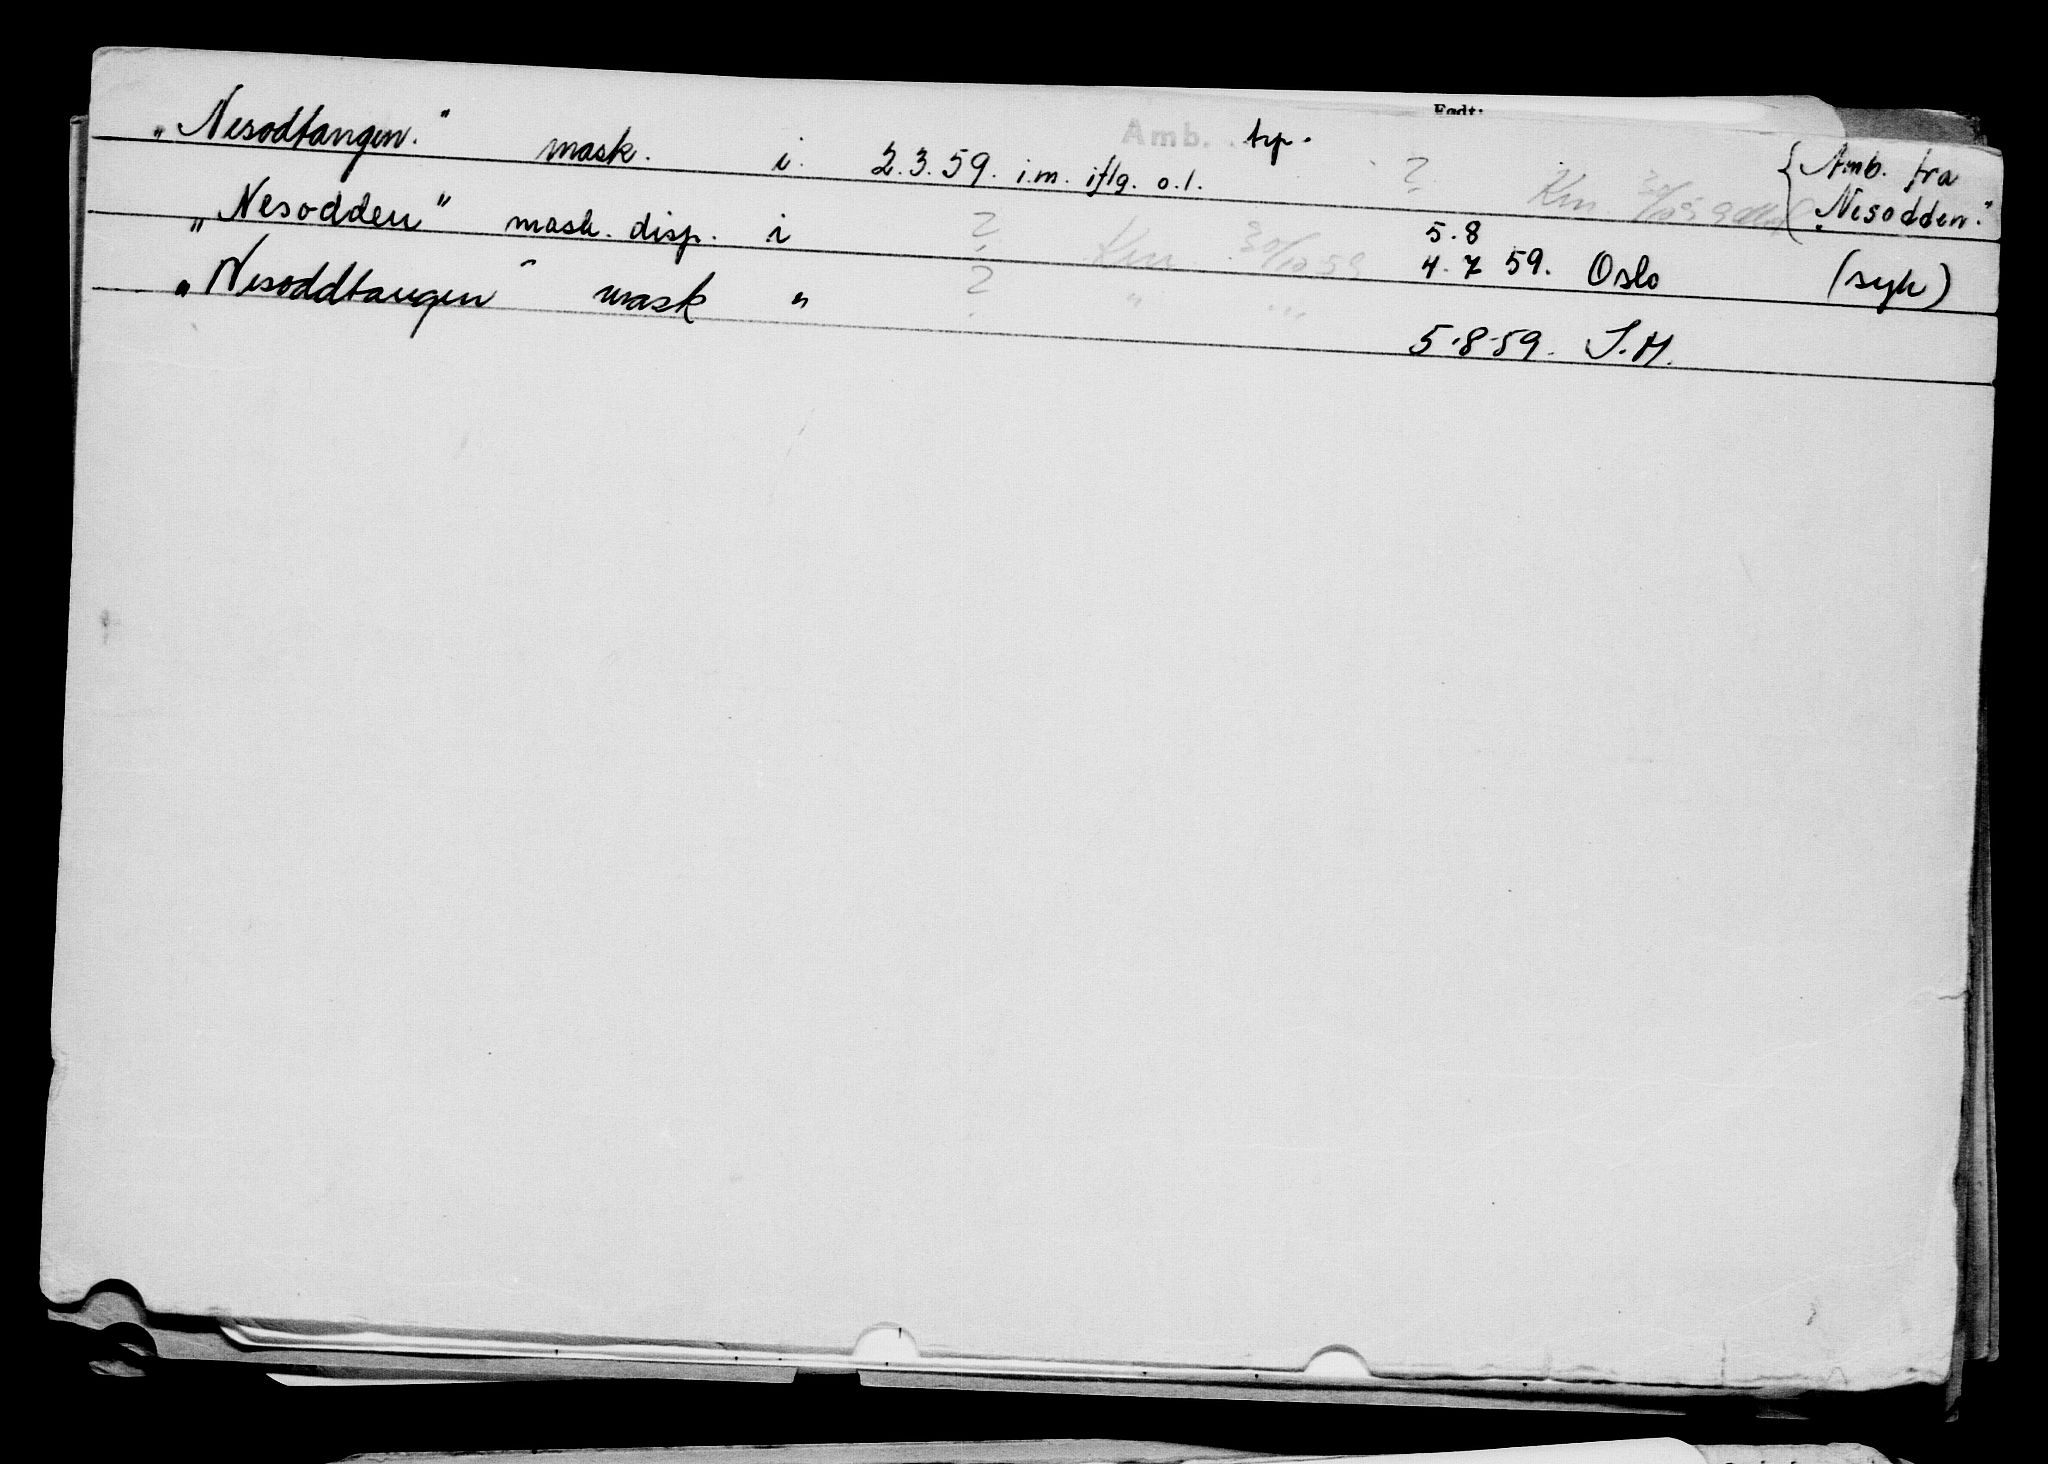 Født:
„Nesodtangen." mask. i. 2.3.59. i.m. iflg. o.l. Amb. trp. ? Km 30/10 59 { Amb. fra
„Nesodden."
„Nesodden" mask. disp. i ? Km 30/10 59 5.8
4.7 59. Oslo (syk)
„Nesoddtangen" mask " ? " " 5.8.59. S.M.